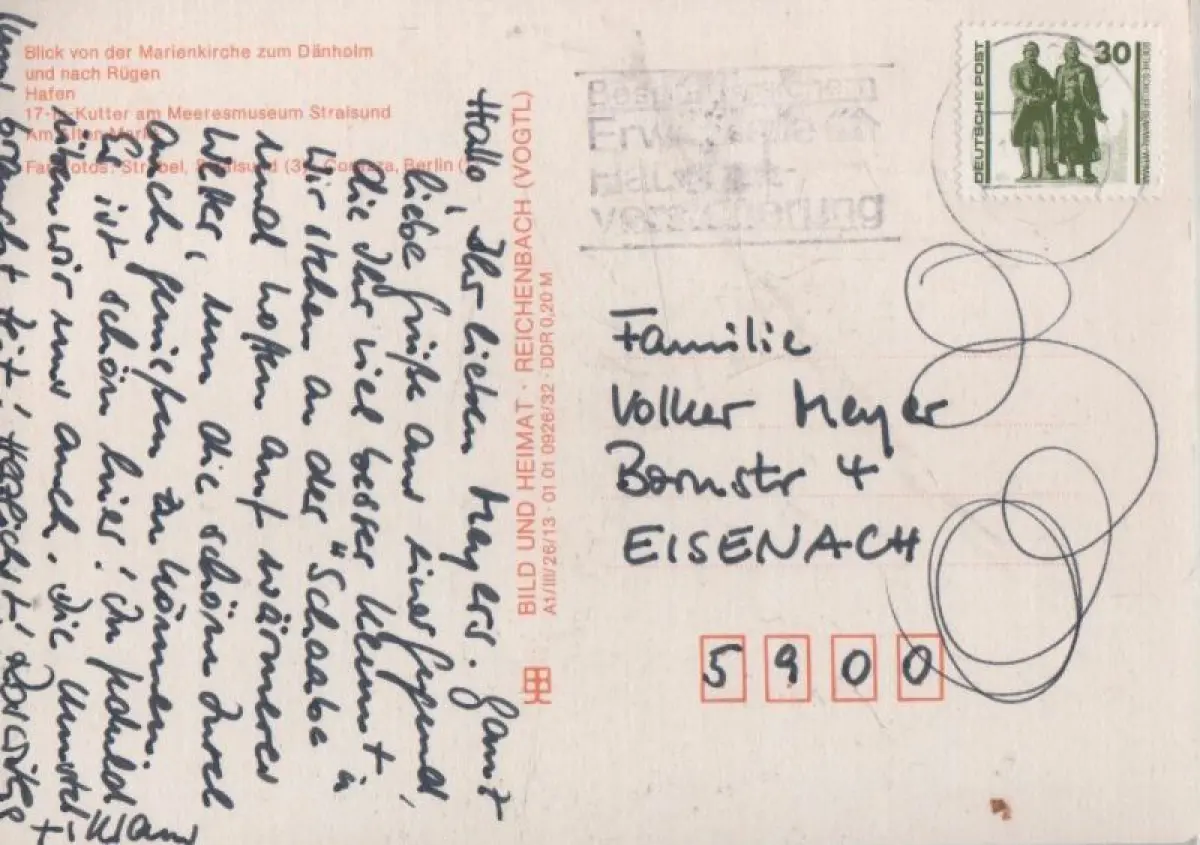 Blick von der Marienkirche zum Dänholm
und nach Rügen
Hafen
17-m-Kutter am Meeresmuseum Stralsund
Am Alten Markt
Farbfotos: Strobel, Stralsund (3), Berlin
BILD UND HEIMAT · REICHENBACH (VOGTL)
A1/III/26/13 · 01 01 0926/32 · DDR 0,20 M
Hallo, Ihr lieben Meyers. Ganz
liebe Grüße aus einer Gegend,
die Ihr viel besser kennt.
Wir stehen an der "Schaabe"
und hoffen auf wärmeres
Wetter, um die schöne Insel
auch genießen zu können.
Es ist schön hier! In Geduld
üben wir uns auch. Die
braucht Zeit! Herzlichst
DEUTSCHE POST
30
versicherung
Familie
Volker Meyer
Bornstr 4
EISENACH
5900